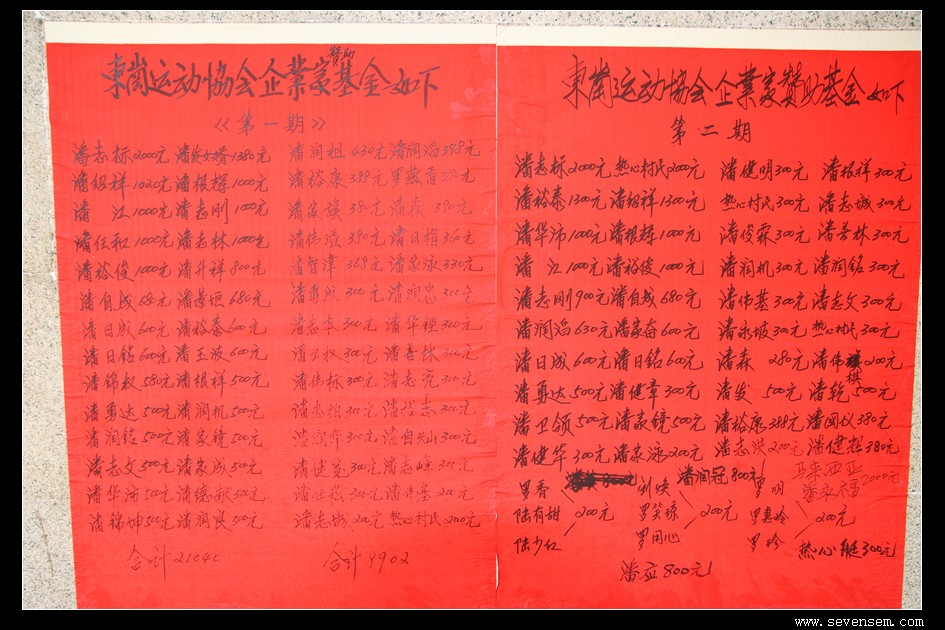 東崗运动協会企業家赞助基金如下
《第一期》
潘志标2000元 潘发女婿1380元 潘润祖430元 潘润滔398元
潘绍祥1020元 潘根辉1000元 潘裕康388元
潘江1000元 潘志刚1000元 潘家族380元 潘森380元
潘任和1000元 潘志林1000元 潘伟溢380元 潘日楷360元
潘裕俊1000元 潘升祥800元 潘智津368元 潘家泳330元
潘自成680元 潘基恒680元 潘勇成300元 潘润忠300元
潘日成600元 潘裕泰600元 潘志本300元 潘华锃300元
潘日铭600元 潘玉波600元 潘卫权300元 潘善林300元
潘锦权580元 潘根祥500元 潘伟标300元 潘志完300元
潘勇达500元 潘润机500元 300元 300元
潘润铭500元 潘家镜500元 潘润华300元 300元
潘志文500元 潘家成500元 潘健 300元 潘志峰300元
潘华沛500元 500元 300元 200元
潘锦坤500元 潘润良500元 潘志城200元 热心村民200元
合计21040 合计9902
東崗运动協会企業家赞助基金如下
第二期
潘志标2000元 热心村民200元 潘健明300元 潘根祥300元
潘裕泰1300元 潘绍祥1300元 热心村民300元 潘志城300元
潘华沛1000元 潘根辉1000元 潘俊霖300元 潘善林300元
潘江1000元 潘裕俊1000元 潘润机300元 潘润铭300元
潘志刚900元 潘自成680元 潘伟基300元 潘志文300元
潘润滔630元 潘家奋600元 潘永坡300元 热心村民300元
潘日成600元 潘日铭600元 潘森280元 潘伟棋200元
潘勇达500元 潘健章300元 潘发500元 潘乾500元
潘卫领500元 潘家镜500元 潘裕康388元 潘国仪380元
潘健华300元 潘家泳200元 潘志洪200元 潘健超380元
潘润冠800元 马来西亚潘永福2000元
罗香 陆有甜 陆少红 200元
刘焕 罗笑琼 罗同心 200元
罗明 罗惠玲 罗珍 200元
热心艇300元
潘应800元
www.sevensem.com